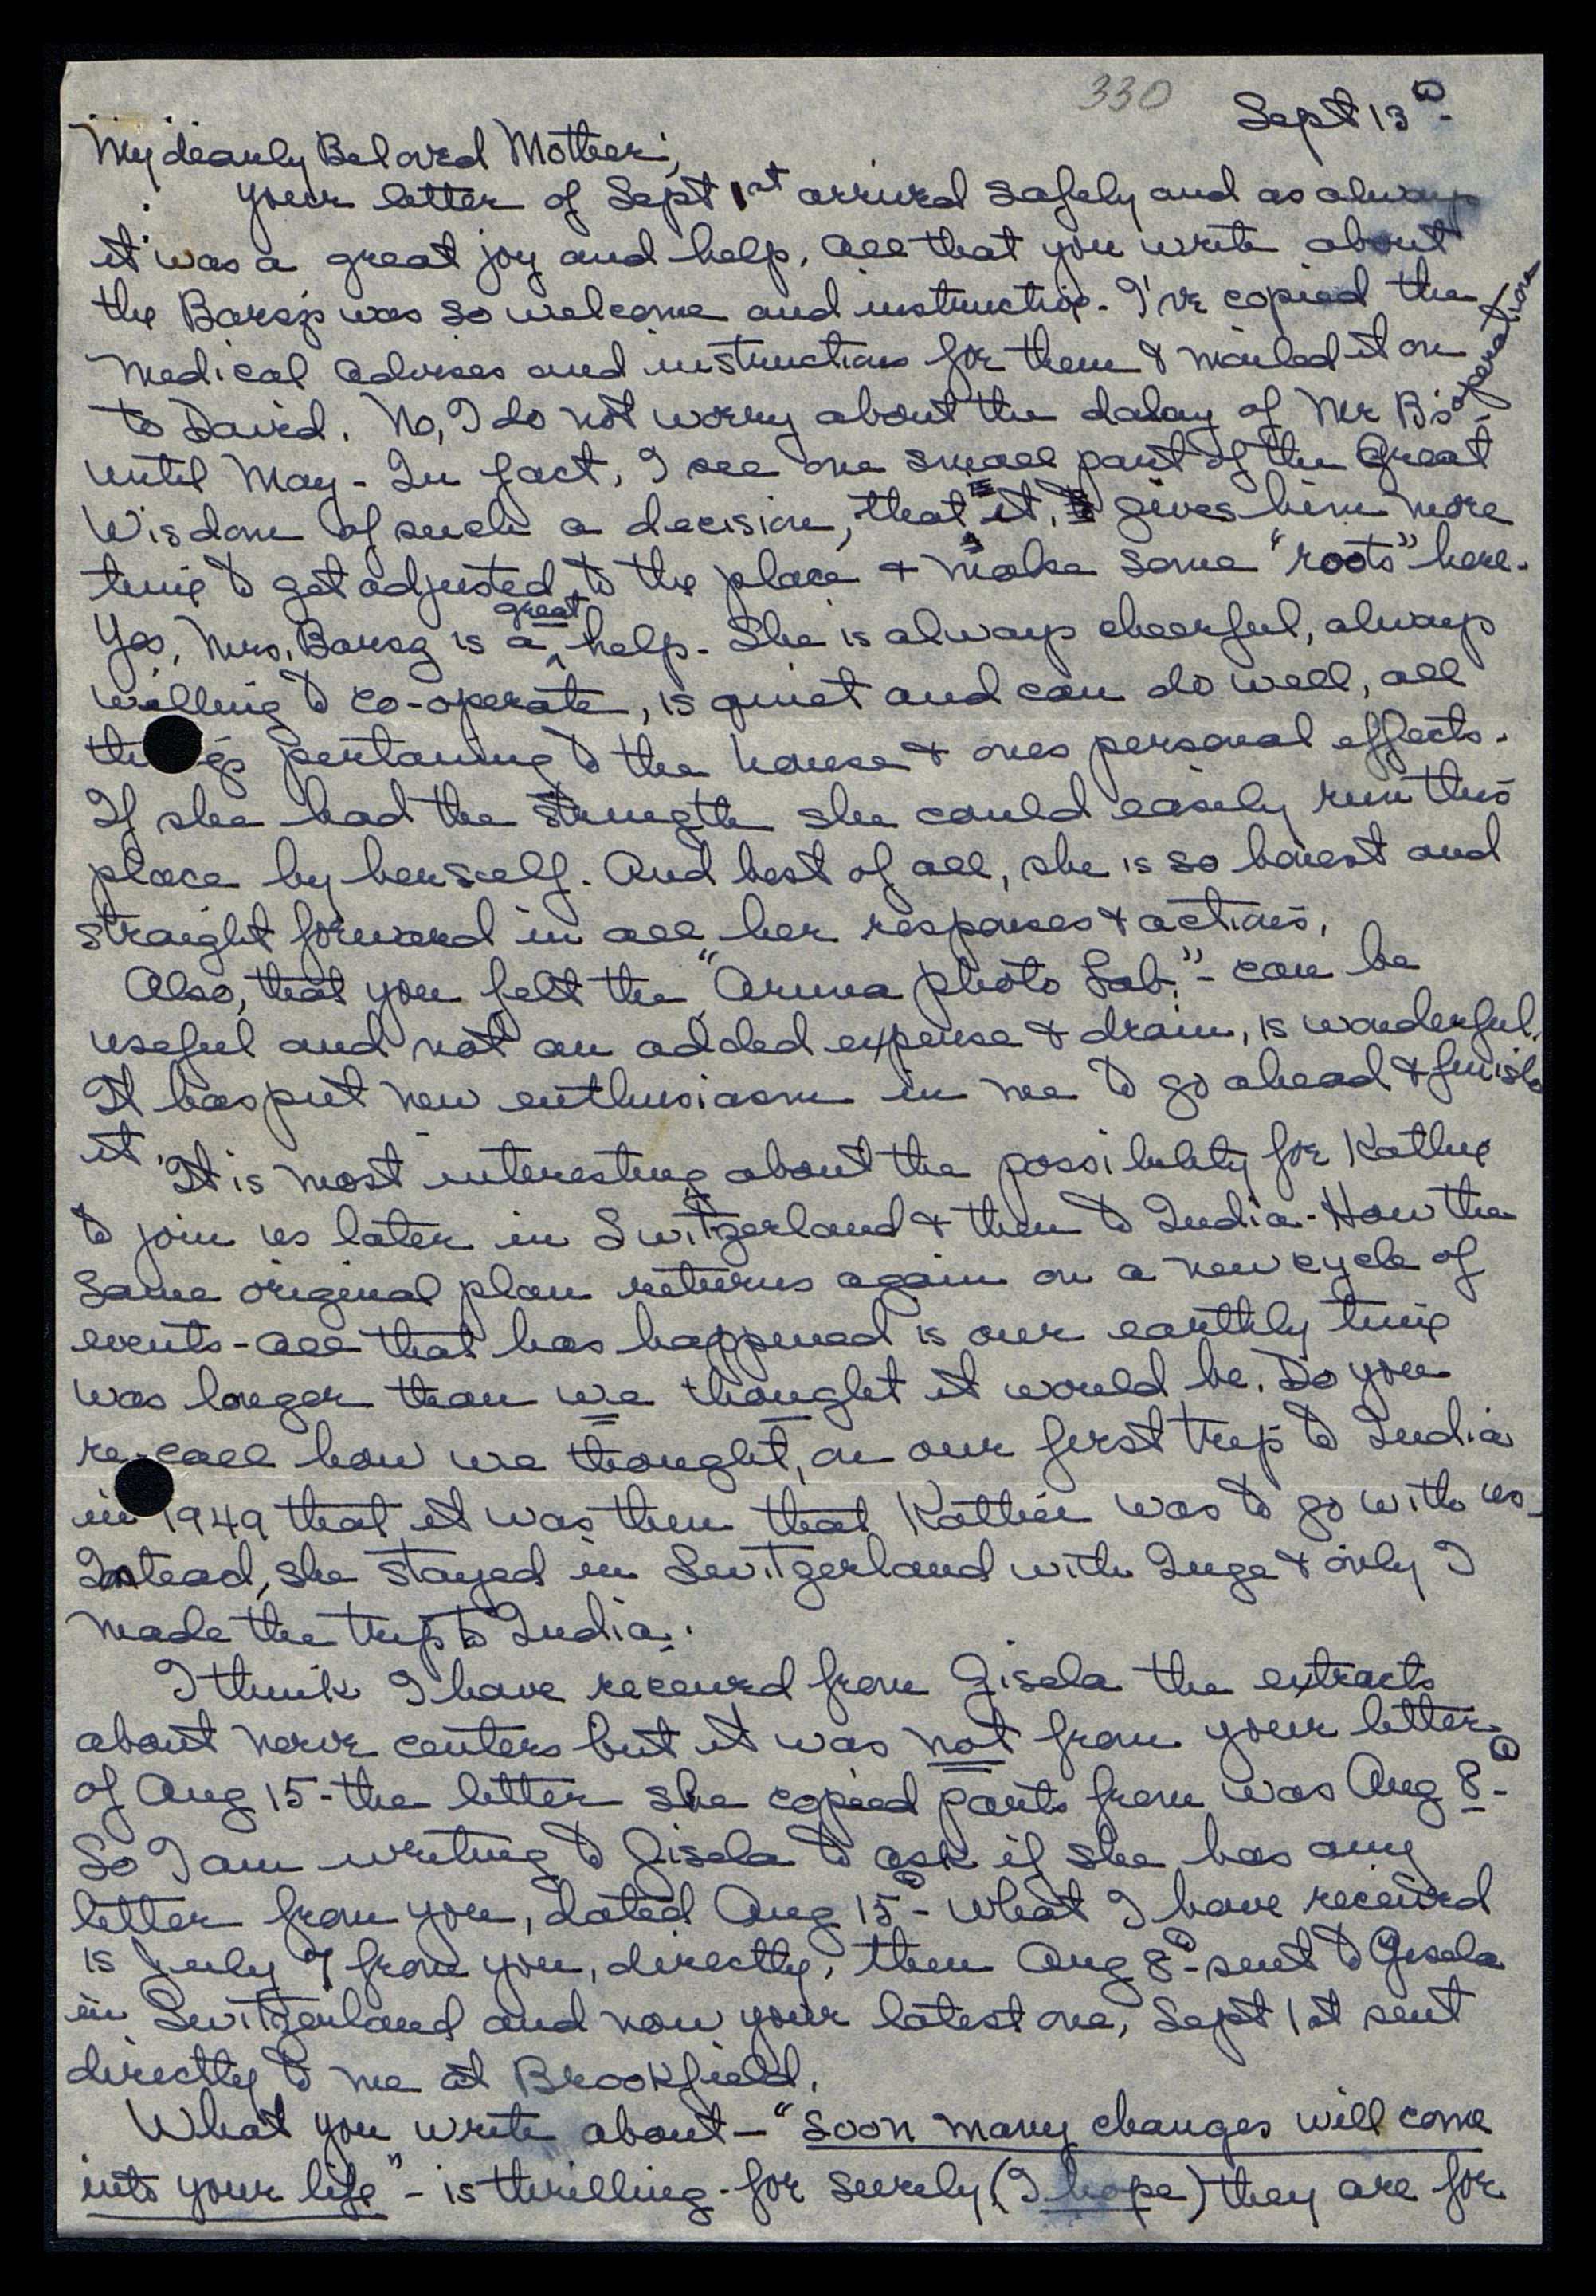 330
Sept 13th-
My dearly Beloved Mother;
Your letter of Sept 1st arrived safely and as always
it was a great joy and help. All that you write about
the Barsz's was so welcome and instructive. I've copied the
Medical advises and instructions for them & mailed it on
to David. No, I do not worry about the delay of Mr B's operation
until May - In fact, I see one small part of the Great
Wisdom of such a decision, that it gives him more
time to get adjusted to the place & make some "roots" here.
Yes, Mrs. Barsz is a great help. She is always cheerful, always
willing to co-operate, is quiet and can do well, all
things pertaining to the house & ones personal effects.
If she had the strength she could easily run this
place by herself. And best of all, she is so honest and
straight forward in all her responses & actions.
Also, that you felt the "Aruna Photo Lab." - can be
useful and not an added expense & drain, is wonderful.
It has put new enthusiasm in me to go ahead & finish
it.
It is most interesting about the possibility for Kathie
to join us later in Switzerland & then to India - How the
same original plan returns again on a new cycle of
events - all that has happened is our earthly time
was longer than we thought it would be. Do you
re-call how we thought, on our first trip to India
in 1949 that it was then that Kathie was to go with us -
Instead, she stayed in Switzerland with Inge & only I
made the trip to India.
I think I have received from Gisela the extracts
about nerve centers but it was not from your letter
of Aug 15 - the letter she copied parts from was Aug 8th-
So I am writing to Gisela to ask if she has any
letter from you, dated Aug 15th - What I have received
is July 7 from you, directly, then Aug 8th - sent to Gisela
in Switzerland and now your latest one, Sept 1st sent
directly to me at Brookfield.
What you write about - "Soon many changes will come
into your life" - is thrilling - for surely (I hope) they are for